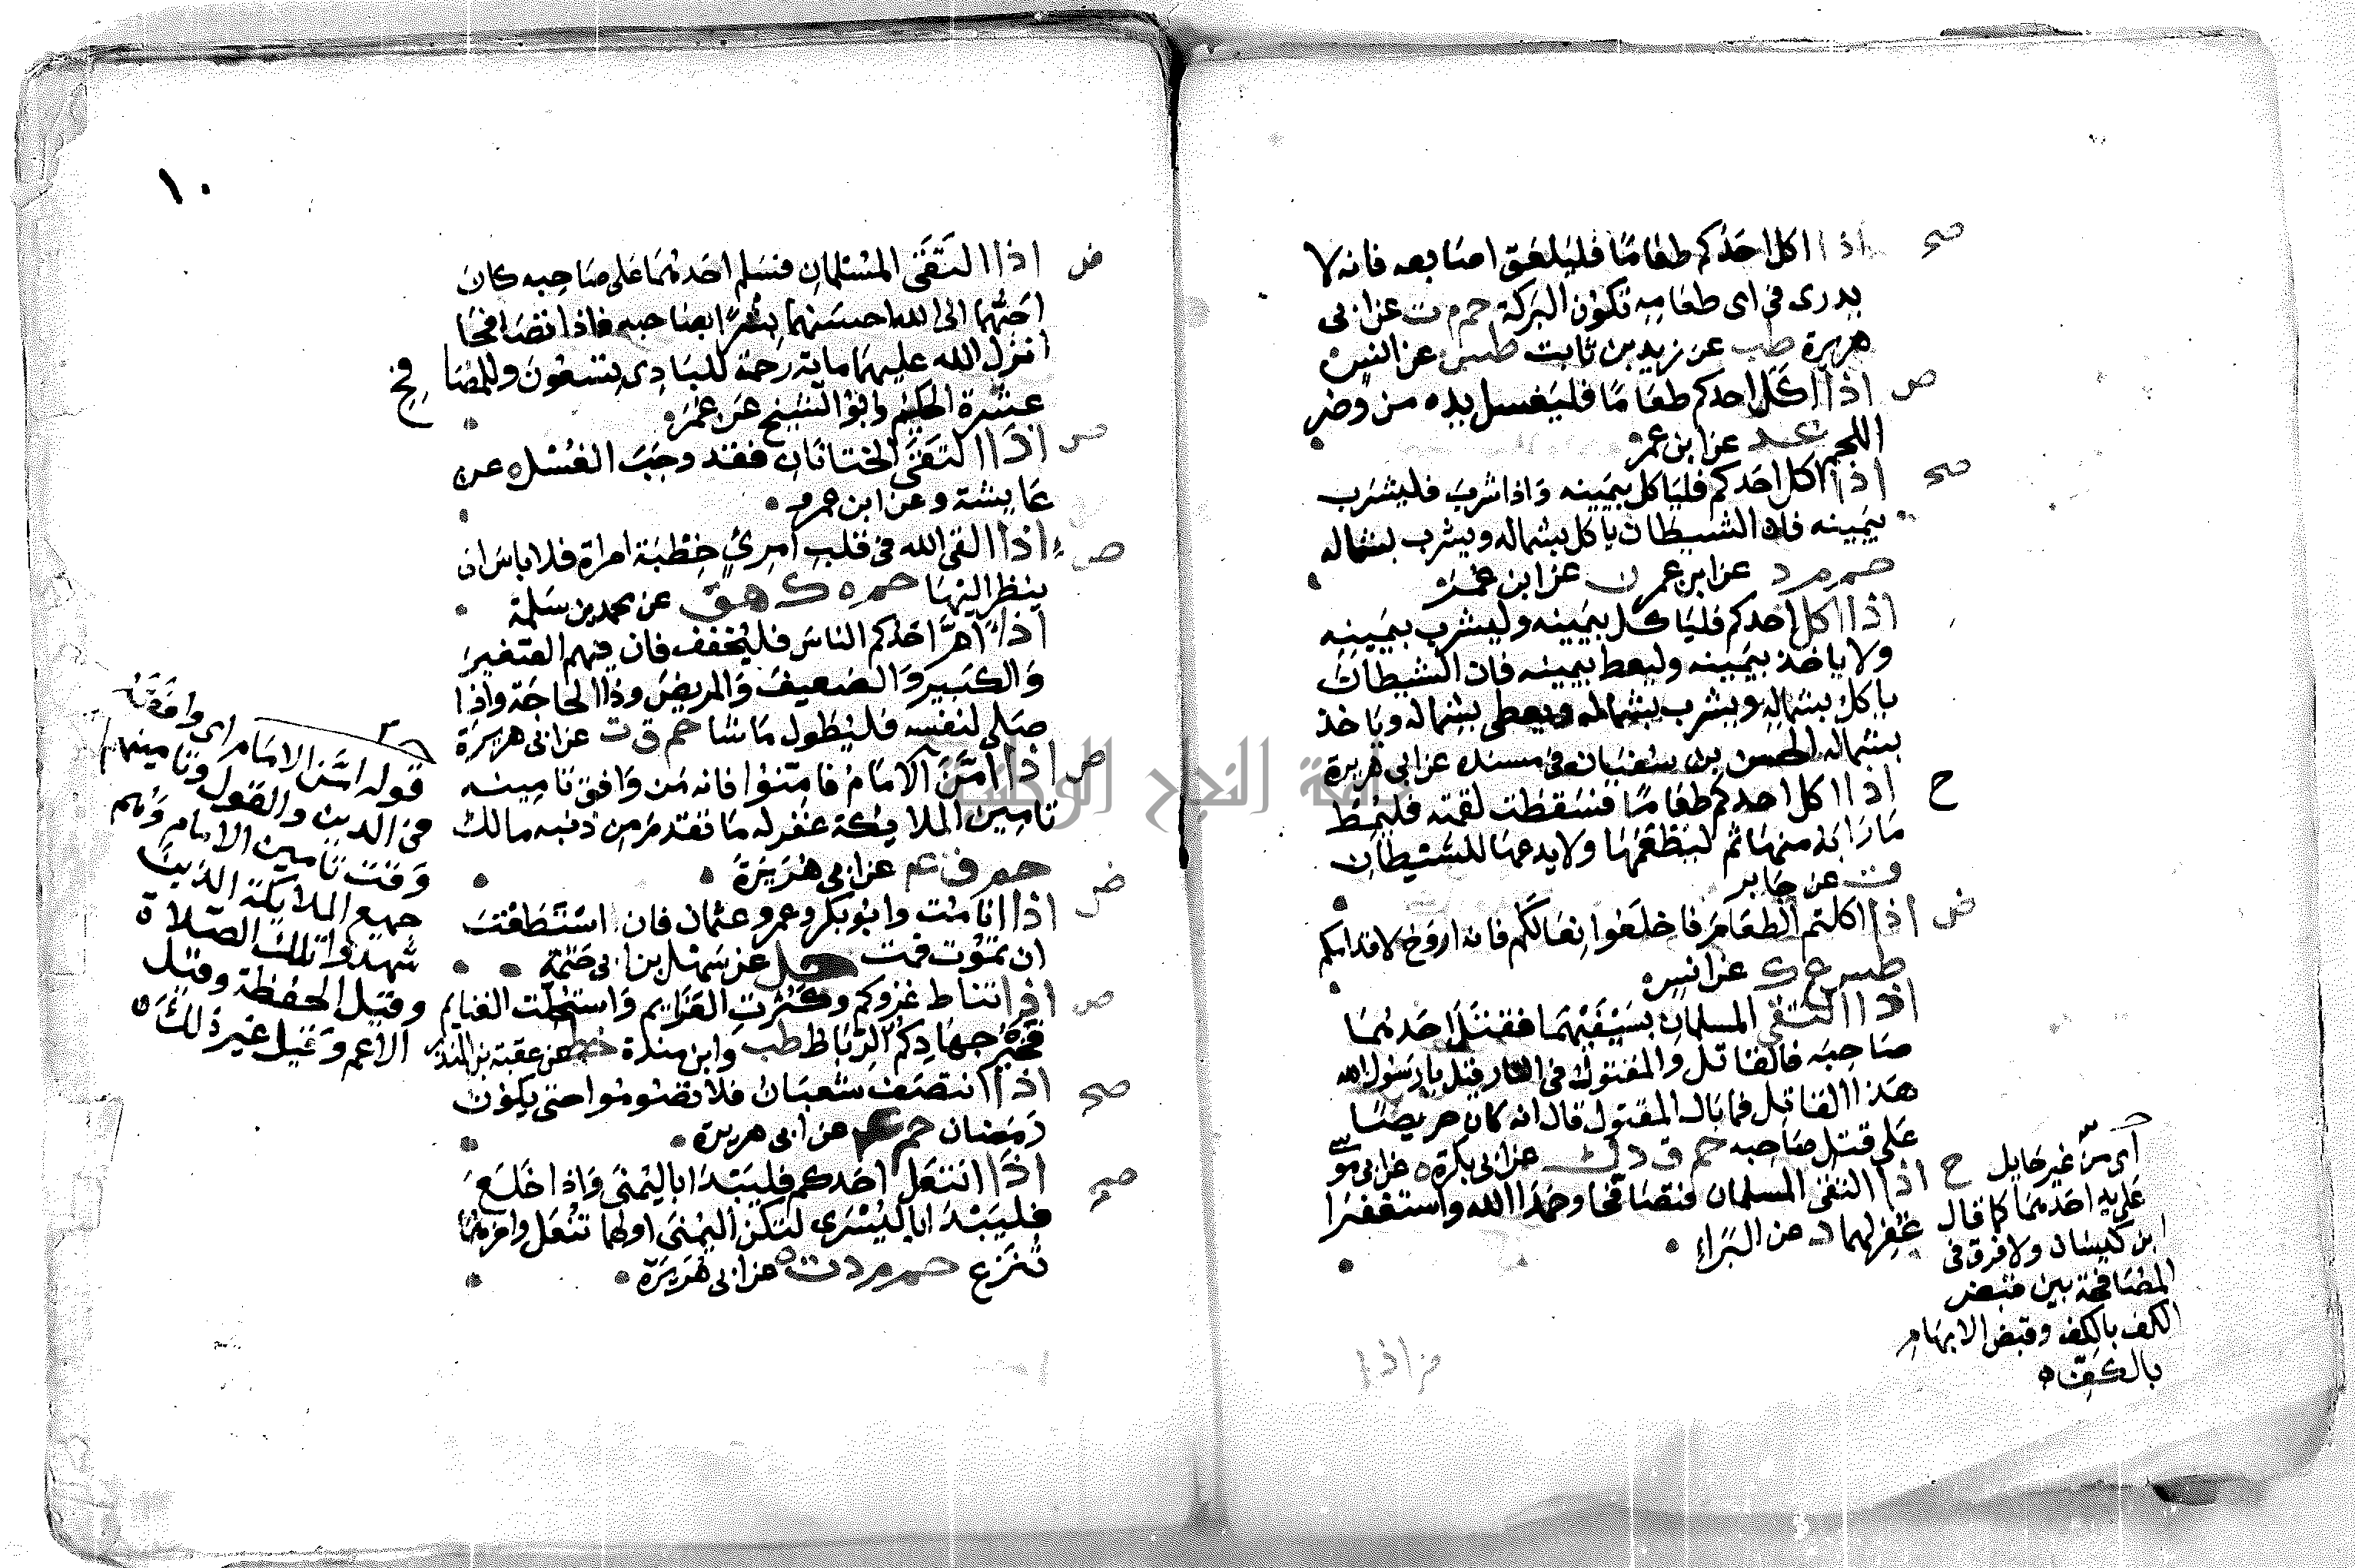 صح
اذا اكل احدكم طعاما فليلعق اصابعه فانه لا
يدرى فى اى طعامه تكون البركة حم م ت عن ابى
هريرة طب عن زيد بن ثابت طس عن انس
ض
اذا اكل احدكم طعاما فليغسل يده من وضر
اللحم عد عن ابن عمر
صح
اذا اكل احدكم فلياكل بيمينه واذا شرب فليشرب
بيمينه فان الشيطان ياكل بشماله ويشرب بشماله
حم م د عن ابن عمر ن عن ابن عمر
اذا اكل احدكم فلياكل بيمينه وليشرب بيمينه
ولا ياخذ بيمينه وليعط بيمينه فان الشيطان
ياكل بشماله ويشرب بشماله ويعطى بشماله وياخذ
بشماله الحسن بن سفيان فى مسنده عن ابى هريرة
ح
اذا اكل احدكم طعاما فسقطت لقمته فليمط
ما رابه منها ثم ليطعمها ولا يدعها للشيطان
ت عن جابر
ض
اذا اكلتم الطعام فاخلعوا نعالكم فانه اروح لاقدامكم
طس ع ك عن انس
اذا التقى المسلمان بسيفيهما فقتل احدهما
صاحبه فالقاتل والمقتول فى النار قيل يا رسول الله
هذا القاتل فما بال المقتول قال انه كان حريصا
على قتل صاحبه حم ق د ن عن ابى بكرة ه عن ابى موسى
ح
اذا التقى المسلمان فتصافحا وحمدا الله واستغفرا
غفر لهما د عن البراء
اى من غير حايل
على يد احدهما كما قال
ابن كيسان ولا فرق فى
المصافحة بين قبض
الكف بالكف وقبض الابهام
بالكف
اذا
١٠
ض
اذا التقى المسلمان فسلم احدهما على صاحبه كان
احبهما الى الله احسنهما بشرا بصاحبه فاذا تصافحا
انزل الله عليهما ماية رحمة للبادى تسعون وللمصافح
عشرة الحكيم وابو الشيخ عن عمر
ص
اذا التقى الختانان فقد وجب الغسل ه عن
عايشة وعن ابن عمرو
ض
اذا القى الله فى قلب امرئ خطبة امراة فلا باس ان
ينظر اليها حم ه ك هق عن محمد بن سلمة
اذا ام احدكم الناس فليخفف فان فيهم الصغير
والكبير والضعيف والمريض وذا الحاجة واذا
صلى لنفسه فليطول ما شا حم ق ت عن ابى هريرة
ص
اذا امن الامام فامنوا فانه من وافق تامينه
تامين الملايكة غفر له ما تقدم من ذنبه مالك
حم ق ع عن ابى هريرة
ض
اذا انا مت وابو بكر وعمر وعثمان فان استطعت
ان تموت فمت حل عن سهل بن ابى حثمة
ض
اذا انتاط غزوكم وكثرت العزايم واستحلت الغنايم
فخير جهادكم الرباط طب وابن مندة خط عن عتبة بن الندر
صح
اذا انتصف شعبان فلا تصوموا حتى يكون
رمضان حم ع عن ابى هريرة
صح
اذا انتعل احدكم فليبدا باليمنى واذا خلع
فليبدا باليسرى لتكن اليمنى اولهما تنعل واخرهما
تنزع حم م د ت ه عن ابى هريرة
قوله امن الامام اى وافقه
فى الدين والقول وتامينهم
وقت تامين الامام وهم
جميع الملايكة الذين
شهدوا تلك الصلاة
وقيل الحفظة وقيل
الاعم وقيل غير ذلك
جامعة النجاح الوطنية